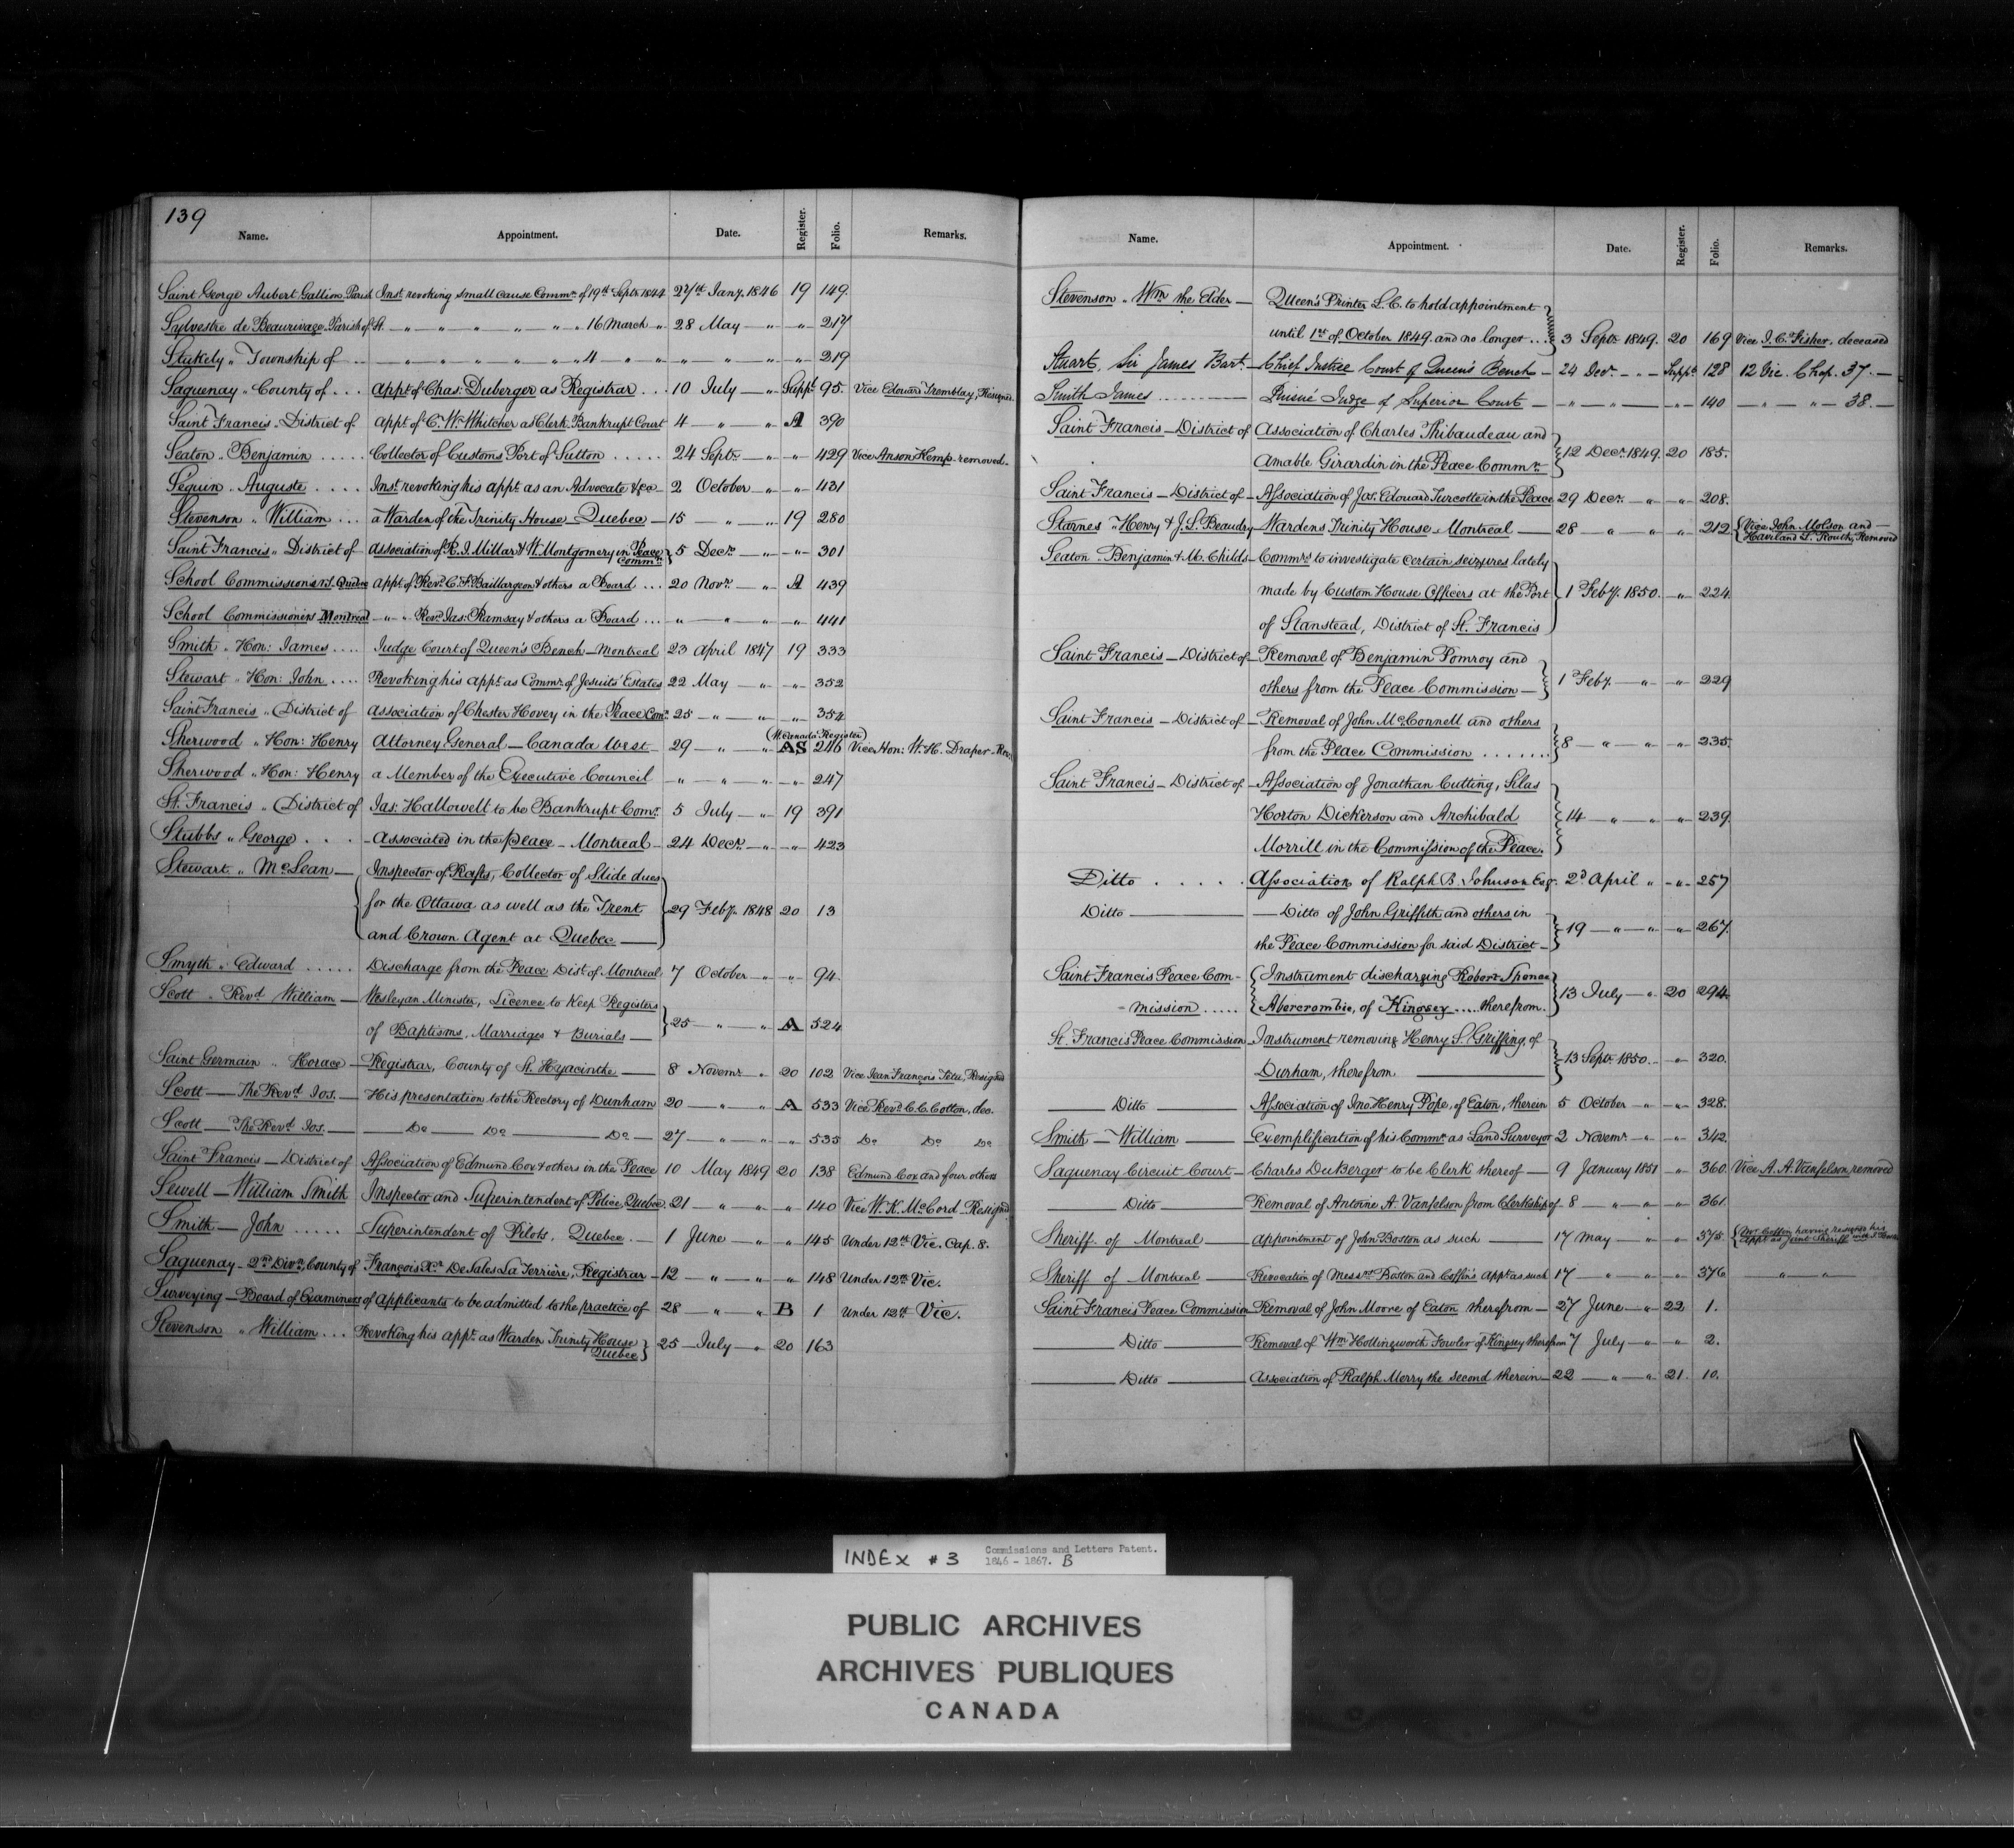 139
Name. Appointment. Date. Register. Folio. Remarks.
Saint George Aubert Gallion Parish Inst. revoking small cause Commn. of 19th Septr. 1844 27th Jany. 1846 19 149.
Sylvestre de Beaurivage. Parish of St. „ „ „ „ „ „ 16 March „ 28 May — „ „ 217
Stukely „ Township of — „ „ „ „ „ 4 — „ — „ „ — „ — „ „ 219
Saguenay „ County of ... Appt. of Chas. Duberger as Registrar ... 10 July — „ Suppt. 95. Vice Edouard Tremblay, Resigned.
Saint Francis „ District of Appt. of C. W. Whitcher as Clerk Bankrupt Court 4 — „ — „ A 390
Seaton „ Benjamin ..... Collector of Customs Port of Sutton ..... 24 Septr. — „ „ 429 Vice Anson Kemp removed.
Séquin „ Auguste .... Inst. revoking his appt. as an Advocate &ca — 2 October — „ „ 431
Stevenson „ William ... a Warden of the Trinity House — Quebec — 15 — „ — „ 19 280
Saint Francis „ District of Association of R. I. Millar & W. Montgomery in Peace Commn. 5 Decr. — „ „ 301
School Commissioners Quebec Appt. of Revd. C. F. Baillargeon & others a Board ... 20 Novr. — „ A 439
School Commissioners Montreal — „ „ Revd. Jas. Ramsay & others a Board ... „ — „ — „ „ 441
Smith „ Hon: James .... Judge Court of Queen's Bench — Montreal 23 April 1847 19 333
Stewart „ Hon: John .... Revoking his appt. as Commr. of Jesuits' Estates 22 May — „ „ 352
Saint Francis „ District of Association of Chester Hovey in the Peace Comn. 25 — „ — „ „ 354
Sherwood „ Hon: Henry Attorney General — Canada West 29 — „ — „ (W. Canada Register) AS 246 Vice Hon: W. H. Draper — Resd.
Sherwood „ Hon: Henry a Member of the Executive Council „ — „ — „ „ 247
St. Francis „ District of Jas. Hallowell to be Bankrupt Comr. 5 July — „ 19 391
Stubbs „ George ... Associated in the peace — Montreal — 24 Decr. — „ „ 423
Stewart „ McLean — Inspector of Rafts, Collector of Slide dues
for the Ottawa as well as the Trent 29 Feby. 1848 20 13
and Crown Agent at Quebec —
Smyth „ Edward ..... Discharge from the Peace Dist. of Montreal 7 October „ „ 94.
Scott „ Revd. William — Wesleyan Minister, Licence to Keep Registers
of Baptisms, Marriages & Burials — 25 — „ „ A 524
Saint Germain „ Horace — Registrar, County of St. Hyacinthe — 8 Novemr. „ 20 102 Vice Jean François Têtu, Resigned
Scott — The Revd. Jos. — His presentation to the Rectory of Dunham 20 — „ „ A 533 Vice Revd. C. C. Cotton, dec.
Scott — The Revd. Jos. — Do — Do — Do — 27 — „ „ „ 535 Do Do Do
Saint Francis — District of Association of Edmund Cox & others in the Peace 10 May 1849 20 138 Edmund Cox and four others
Sewell — William Smith Inspector and Superintendent of Police, Quebec. 21 — „ „ „ 140 Vice W. K. McCord — Resigned
Smith — John ..... Superintendent of Pilots, Quebec. — 1 June — „ „ 145 Under 12th Vic. Cap. 8.
Saguenay — 2nd Divn., County of François Xr. De Sales La Terrière, Registrar — 12 — „ „ „ 148 Under 12th Vic.
Surveying — Board of Examiners of Applicants to be admitted to the practice of 28 — „ — „ B 1 Under 12th Vic.
Stevenson „ William ... Revoking his appt. as Warden Trinity House Quebec 25 — July — „ 20 163
Name. Appointment. Date. Register. Folio. Remarks.
Stevenson „ Wm. the Elder — Queen's Printer L.C. to hold appointment
until 1st of October 1849 and no longer ... 3 Septr. 1849. 20 169 Vice J. C. Fisher, deceased
Stuart, Sir James Bart. — Chief Justice Court of Queen's Bench — 24 Decr. — „ — Suppt. 128 12 Vic. Chap. 37. —
Smith James .......... Puisné Judge of Superior Court — „ — „ — „ 140 — „ — „ — 38. —
Saint Francis — District of Association of Charles Thibaudeau and
Amable Girardin in the Peace Commn. — 12 Decr. 1849. 20 185.
Saint Francis — District of — Association of Jos. Edouard Turcotte in the Peace 29 Decr. — „ „ 208.
Starnes „ Henry & J. L. Beaudry — Wardens Trinity House, Montreal — 28 — „ „ „ 212 Vice John Molson and —
Haviland L. Routh, Removed
Seaton „ Benjamin & M. Childs — Commrs. to investigate certain seizures lately
made by Custom House Officers at the Port 1 Feby. 1850. — „ 224
of Stanstead, District of St. Francis
Saint Francis — District of — Removal of Benjamin Pomroy and
others from the Peace Commission — 1 Feby. — „ „ 229
Saint Francis — District of — Removal of John McConnell and others
from the Peace Commission ....... 8 — „ — „ „ 235.
Saint Francis — District of — Association of Jonathan Cutting, Silas
Horton Dickerson and Archibald 14 — „ — „ „ 239.
Morrill in the Commission of the Peace.
Ditto ..... Association of Ralph B. Johnson Esqr. 2d April „ „ 257
Ditto — Ditto of John Griffith and others in
the Peace Commission for said District — 19 — „ — „ „ 267.
Saint Francis Peace Com- Instrument discharging Robert Spence
- mission ..... Abercrombie, of Kingsey ..... therefrom. 13 July — „ 20 294.
St. Francis Peace Commission — Instrument removing Henry S. Griffing, of
Durham, therefrom — 13 Septr. 1850. — „ 320.
— Ditto — Association of Jno. Henry Pope, of Eaton, therein 5 October — „ „ 328.
Smith — William — Exemplification of his Commn. as Land Surveyor 2 Novemr. — „ „ 342.
Saguenay Circuit Court — Charles DuBerger to be Clerk thereof — 9 January 1851 — „ 360. Vice A. A. Vanfelson, removed
— Ditto — Removal of Antoine A. Vanfelson from Clerkship of 8 — „ — „ „ 361.
Sheriff of Montreal — Appointment of John Boston as such — 17 May — „ „ 375. Mr. Coffin having resigned his
Appt. as Joint Sheriff
Sheriff of Montreal — Revocation of Messrs. Boston and Coffin's Appt. as such 17 — „ — „ „ 376 „ — „
Saint Francis Peace Commission — Removal of John Moore of Eaton therefrom — 27 June — „ 22 1.
— Ditto — Removal of Wm. Hollingworth Fowler of Kingsey therefrom 7 July — „ „ 2.
— Ditto — Association of Ralph Merry the second therein — 22 — „ — „ 21. 10.
INDEX # 3 Commissions and Letters Patent.
1846 - 1867. B
PUBLIC ARCHIVES
ARCHIVES PUBLIQUES
CANADA